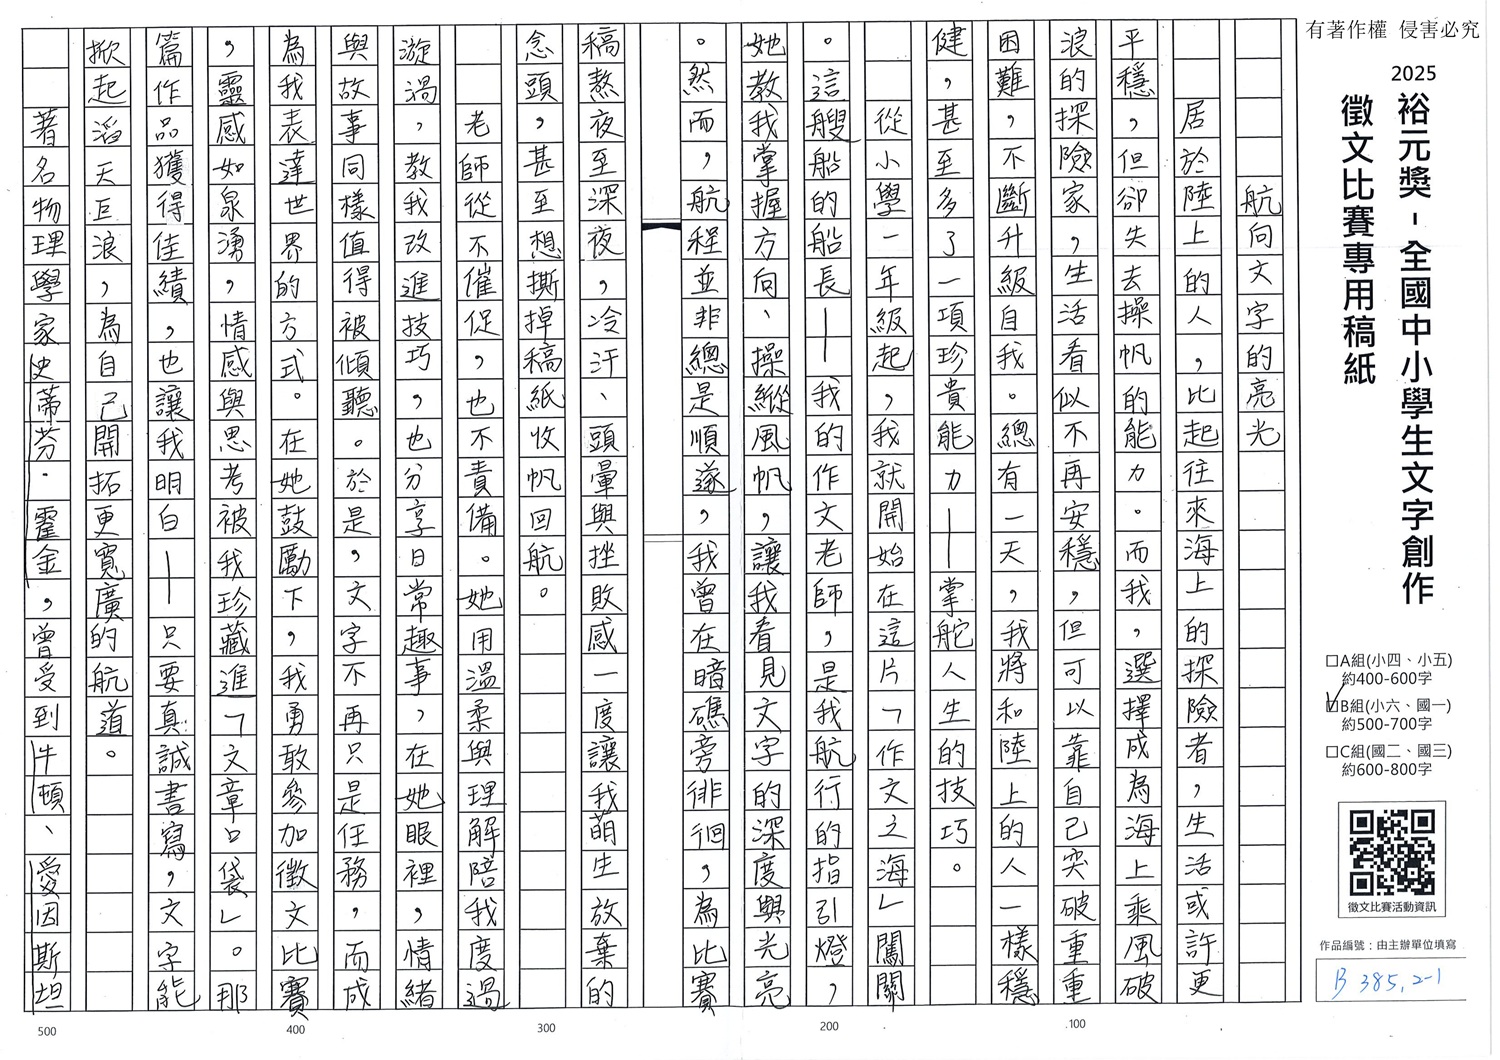 有著作權 侵害必究
2025
裕元獎-全國中小學生文字創作
徵文比賽專用稿紙
□A組(小四、小五)
約400-600字
☑B組(小六、國一)
約500-700字
□C組(國二、國三)
約600-800字
徵文比賽活動資訊
作品編號：由主辦單位填寫
B 385, 2-1
航向文字的亮光
居於陸上的人，比起往來海上的探險者，生活或許更
平穩，但卻失去操帆的能力。而我，選擇成為海上乘風破
浪的探險家，生活看似不再安穩，但可以靠自己突破重重
困難，不斷升級自我。總有一天，我將和陸上的人一樣穩
健，甚至多了一項珍貴能力——掌舵人生的技巧。
從小學一年級起，我就開始在這片「作文之海」闖關
。這艘船的船長——我的作文老師，是我航行的指引燈，
她教我掌握方向、操縱風帆，讓我看見文字的深度與光亮
。然而，航程並非總是順遂，我曾在暗礁旁徘徊，為比賽
稿熬夜至深夜，冷汗、頭暈與挫敗感一度讓我萌生放棄的
念頭，甚至想撕掉稿紙收帆回航。
老師從不催促，也不責備。她用溫柔與理解陪我度過
漩渦，教我改進技巧，也分享日常趣事，在她眼裡，情緒
與故事同樣值得被傾聽。於是，文字不再只是任務，而成
為我表達世界的方式。在她鼓勵下，我勇敢參加徵文比賽
，靈感如泉湧，情感與思考被我珍藏進「文章口袋」。那
篇作品獲得佳績，也讓我明白——只要真誠書寫，文字能
掀起滔天巨浪，為自己開拓更寬廣的航道。
著名物理學家史蒂芬·霍金，曾受到牛頓、愛因斯坦
100
200
300
400
500